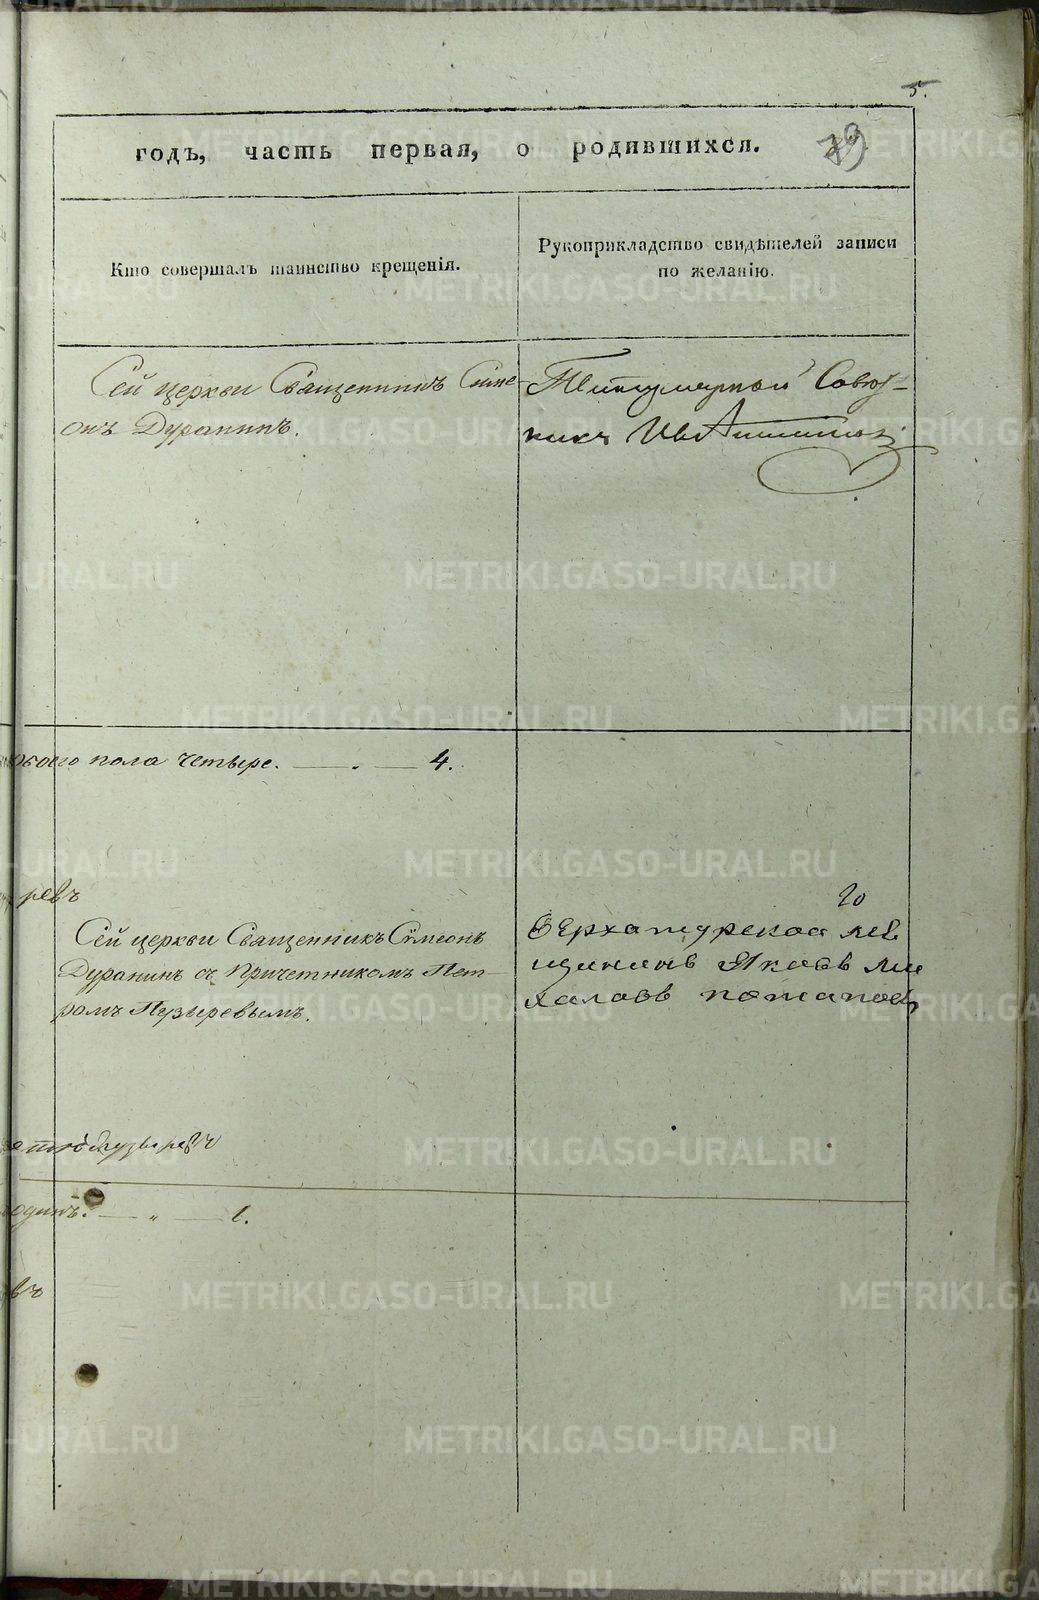 5.
годъ, часть первая, о родившихся.
Кто совершалъ таинство крещенія.
Рукоприкладство свидѣтелей записи
по желанію.
Сей церкви Священникъ Симе-
онъ Дурапинъ.
Титулярной Совѣт-
никъ
обоего пола четыре. — . — 4.
ревъ
Сей церкви Священникъ Симеонъ
Дурапинъ съ Причетникомъ Пет-
ромъ Пузыревымъ.
го
верхатурскоа ме
щининъ Якавъ Ми
халавъ потаповъ
Пузыревъ
одинъ. — „ — 1.
въ
METRIKI.GASO-URAL.RU